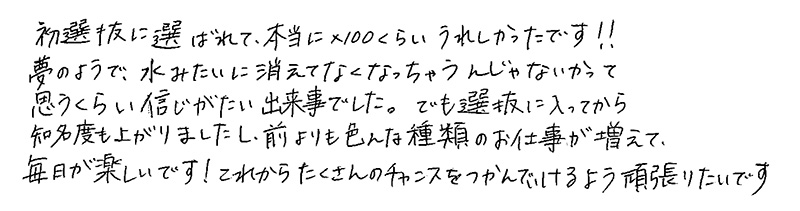 初選抜に選ばれて、本当に×100くらいうれしかったです!!
夢のようで、水みたいに消えてなくなっちゃうんじゃないかって
思うくらい信じがたい出来事でした。でも選抜に入ってから
知名度も上がりましたし、前よりも色んな種類のお仕事が増えて、
毎日が楽しいです！これからたくさんのチャンスをつかんでいけるよう頑張りたいです